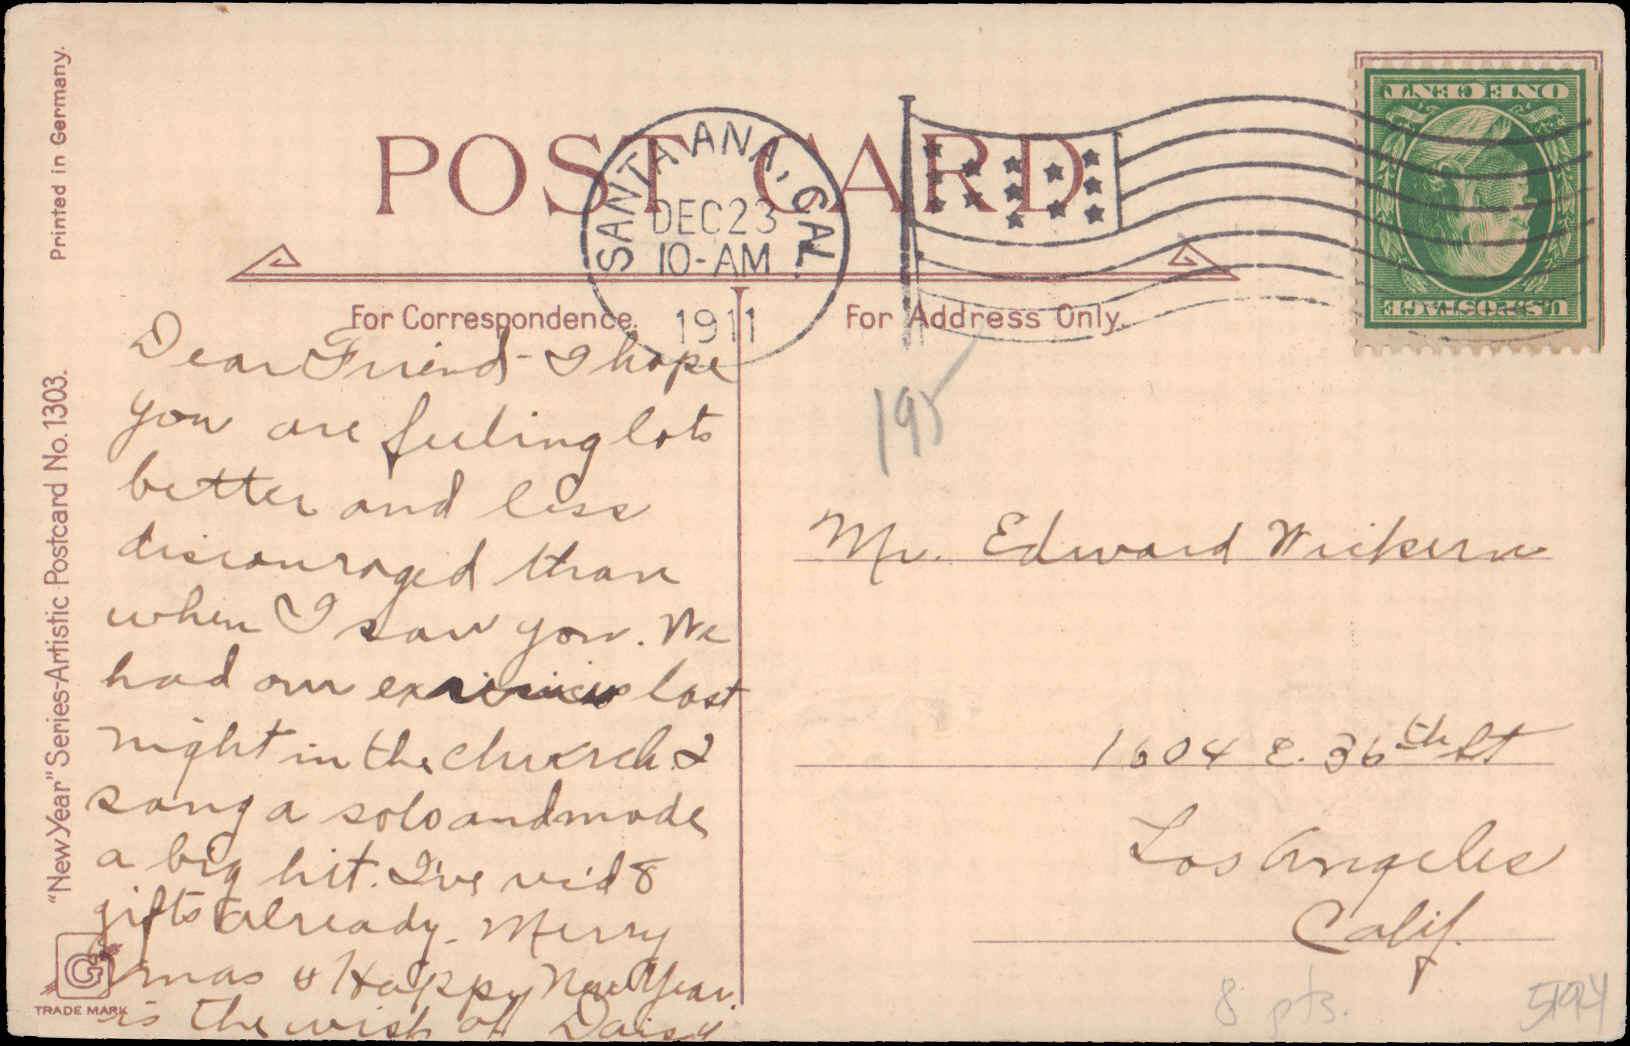 Printed in Germany.
"New Year" Series-Artistic Postcard No. 1303.
POST CARD
SANTA ANA, CAL.
DEC 23
10-AM
1911
ONE CENT
U.S. POSTAGE
For Correspondence.
For Address Only.
Dear Friend - I hope
you are feeling lots
better and less
discouraged than
when I saw you. We
had our last
night in the church. I
sang a solo and made
a big hit. I've rec'd 8
gifts already. Merry
Xmas & Happy New Year.
is the wish of Daisy
195
Mr. Edward Wickern
1604 E. 36th St
Los Angeles
Calif.
8 pts.
G
TRADE MARK